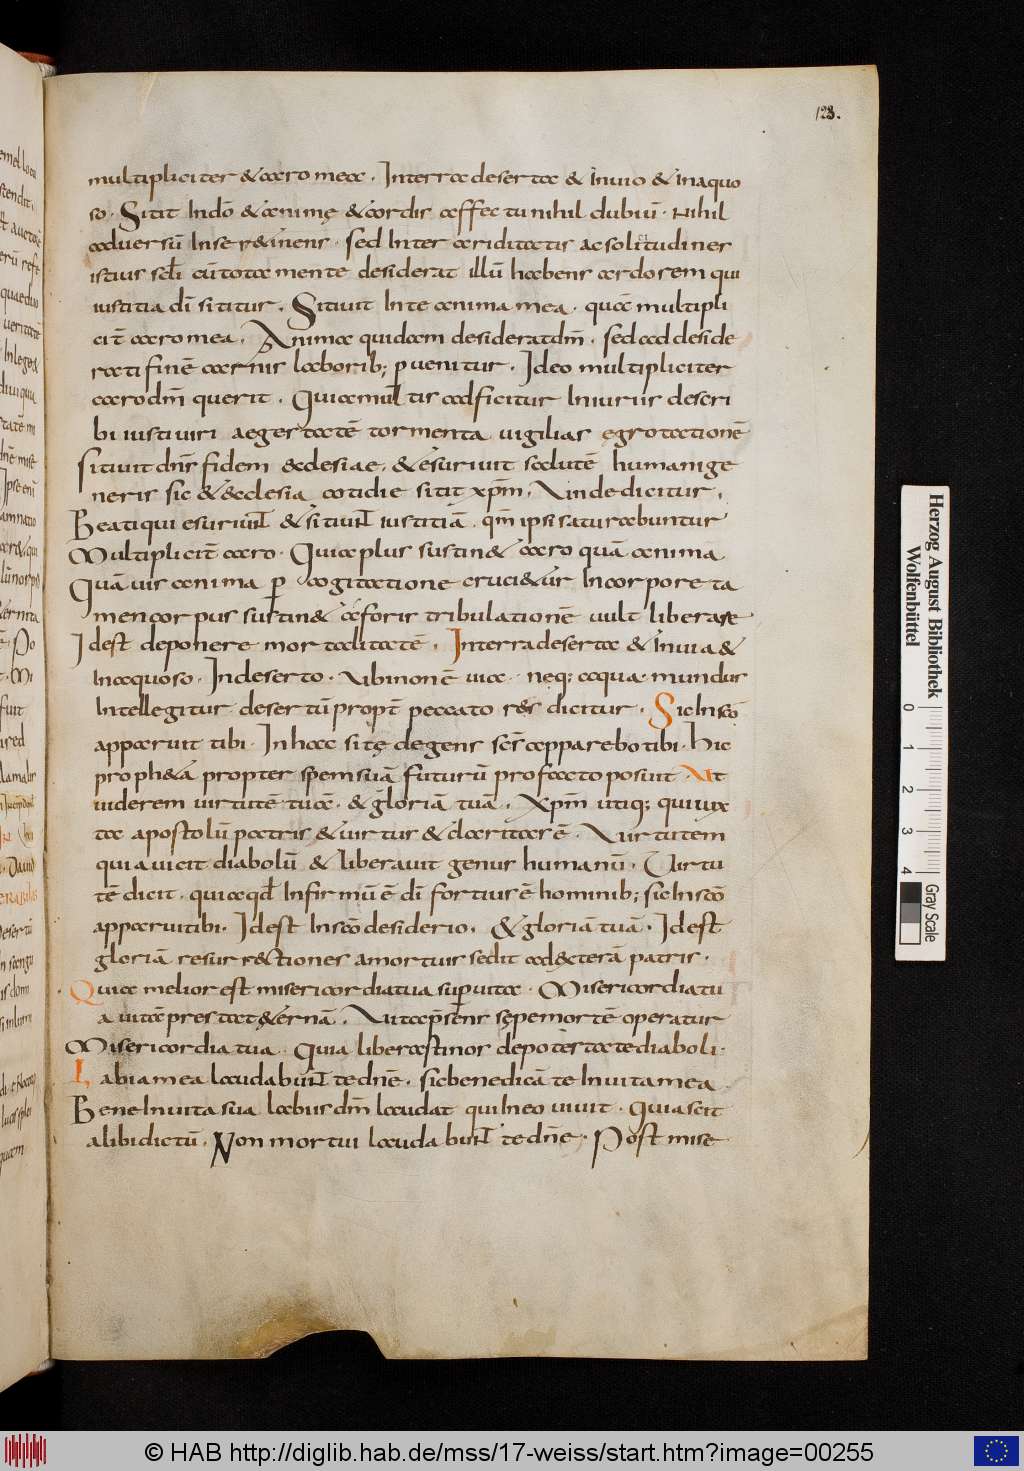 128.
multipliciter & caro mea. In terra deserta & Invio & Inaquo
so. Sitit In dō & animę & cordis affectu nihil dubiū. Nihil
adversū Inser&inens. sed Inter ariditatis ac solitudiner
istius scłi cū tota mente desiderat illū habens ardorem qui
iustitia dī sititur. Sitivit In te anima mea. quā multipli
cit̄ caro mea. Anima quidam desiderat dm̄. sed ad deside
rati finē carnis laborib; pvenitur. Ideo multipliciter
caro dm̄ querit. Quia multis adficitur Iniuriis descri
bi iusti viri aegestatē tormenta vigilias ęgrotationē
sitivit dn̄s fidem ecclesiae. & esurivit salutē humani ge
neris sic & ecclesia cotidie sitit xpm̄. Unde dicitur.
Beati qui esuriunt & sitiunt iustitiā. qm̄ ipsi saturabuntur
Multiplicit̄ caro. Quia plus sustin& caro quā animā
Quāvis anima p cogitatione cruci&ur In corpore ta
men corpus sustin& & aforis tribulationē vult liberare
Idest deponere mortalitatē. In terra deserta & Invia &
Inaquoso. In deserto. Ubi non ē via. neq; aqua. mundus
Intellegitur desertū propt̄ peccato res dicitur. Sic In scō
apparuit tibi. In hac sitę degens scs apparebo tibi. Hic
proph&a propter spem suā futurū pro facto posuit. Ut
viderem virtutē tuā. & gloriā tuā. Xpm̄ utiq; qui iux
ta apostolū patris & virtus & claritas ē. Virtutem
quia vicit diabolū & liberavit genus humanū. Virtu
tē dicit. quia qd Infirmū ē dī fortius ē hominib; sic In scō
apparui tibi. Idest In scō desiderio. & gloriā tuā. Idest
gloriā resurrectiones a mortuis sedit ad dexterā patris.
Quia melior est misericordia tua sup vitā. Misericordia tu
a vitā prestat &ernā. Vita psens sępe mortē operatur
Misericordia tua. Quia liberastinos de potestate diaboli.
Labia mea laudabunt te dnē. sic benedicā te In vita mea
Bene In vita sua labiis dm̄ laudat qui In eo vivit. Quia scit
alibi dictū. Non mortui laudabunt te dnē. Post mise
Herzog August Bibliothek
Wolfenbüttel
0 1 2 3 4 Gray Scale
© HAB http://diglib.hab.de/mss/17-weiss/start.htm?image=00255